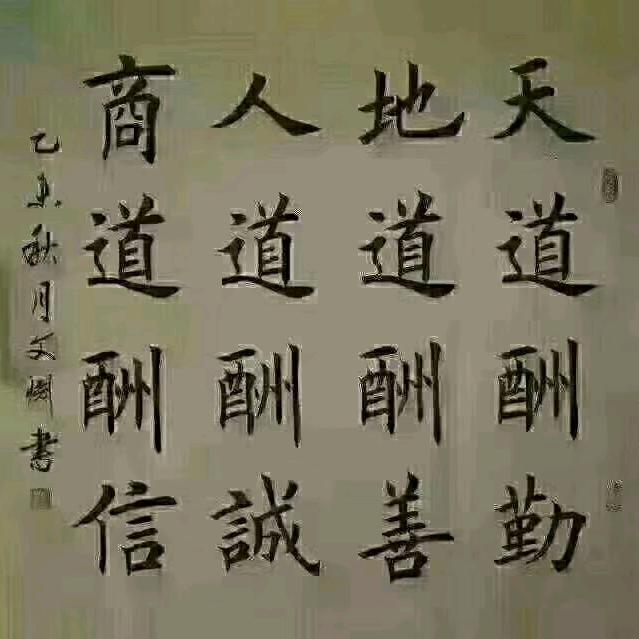 天道酬勤
地道酬善
人道酬誠
商道酬信
乙未秋月文閑書